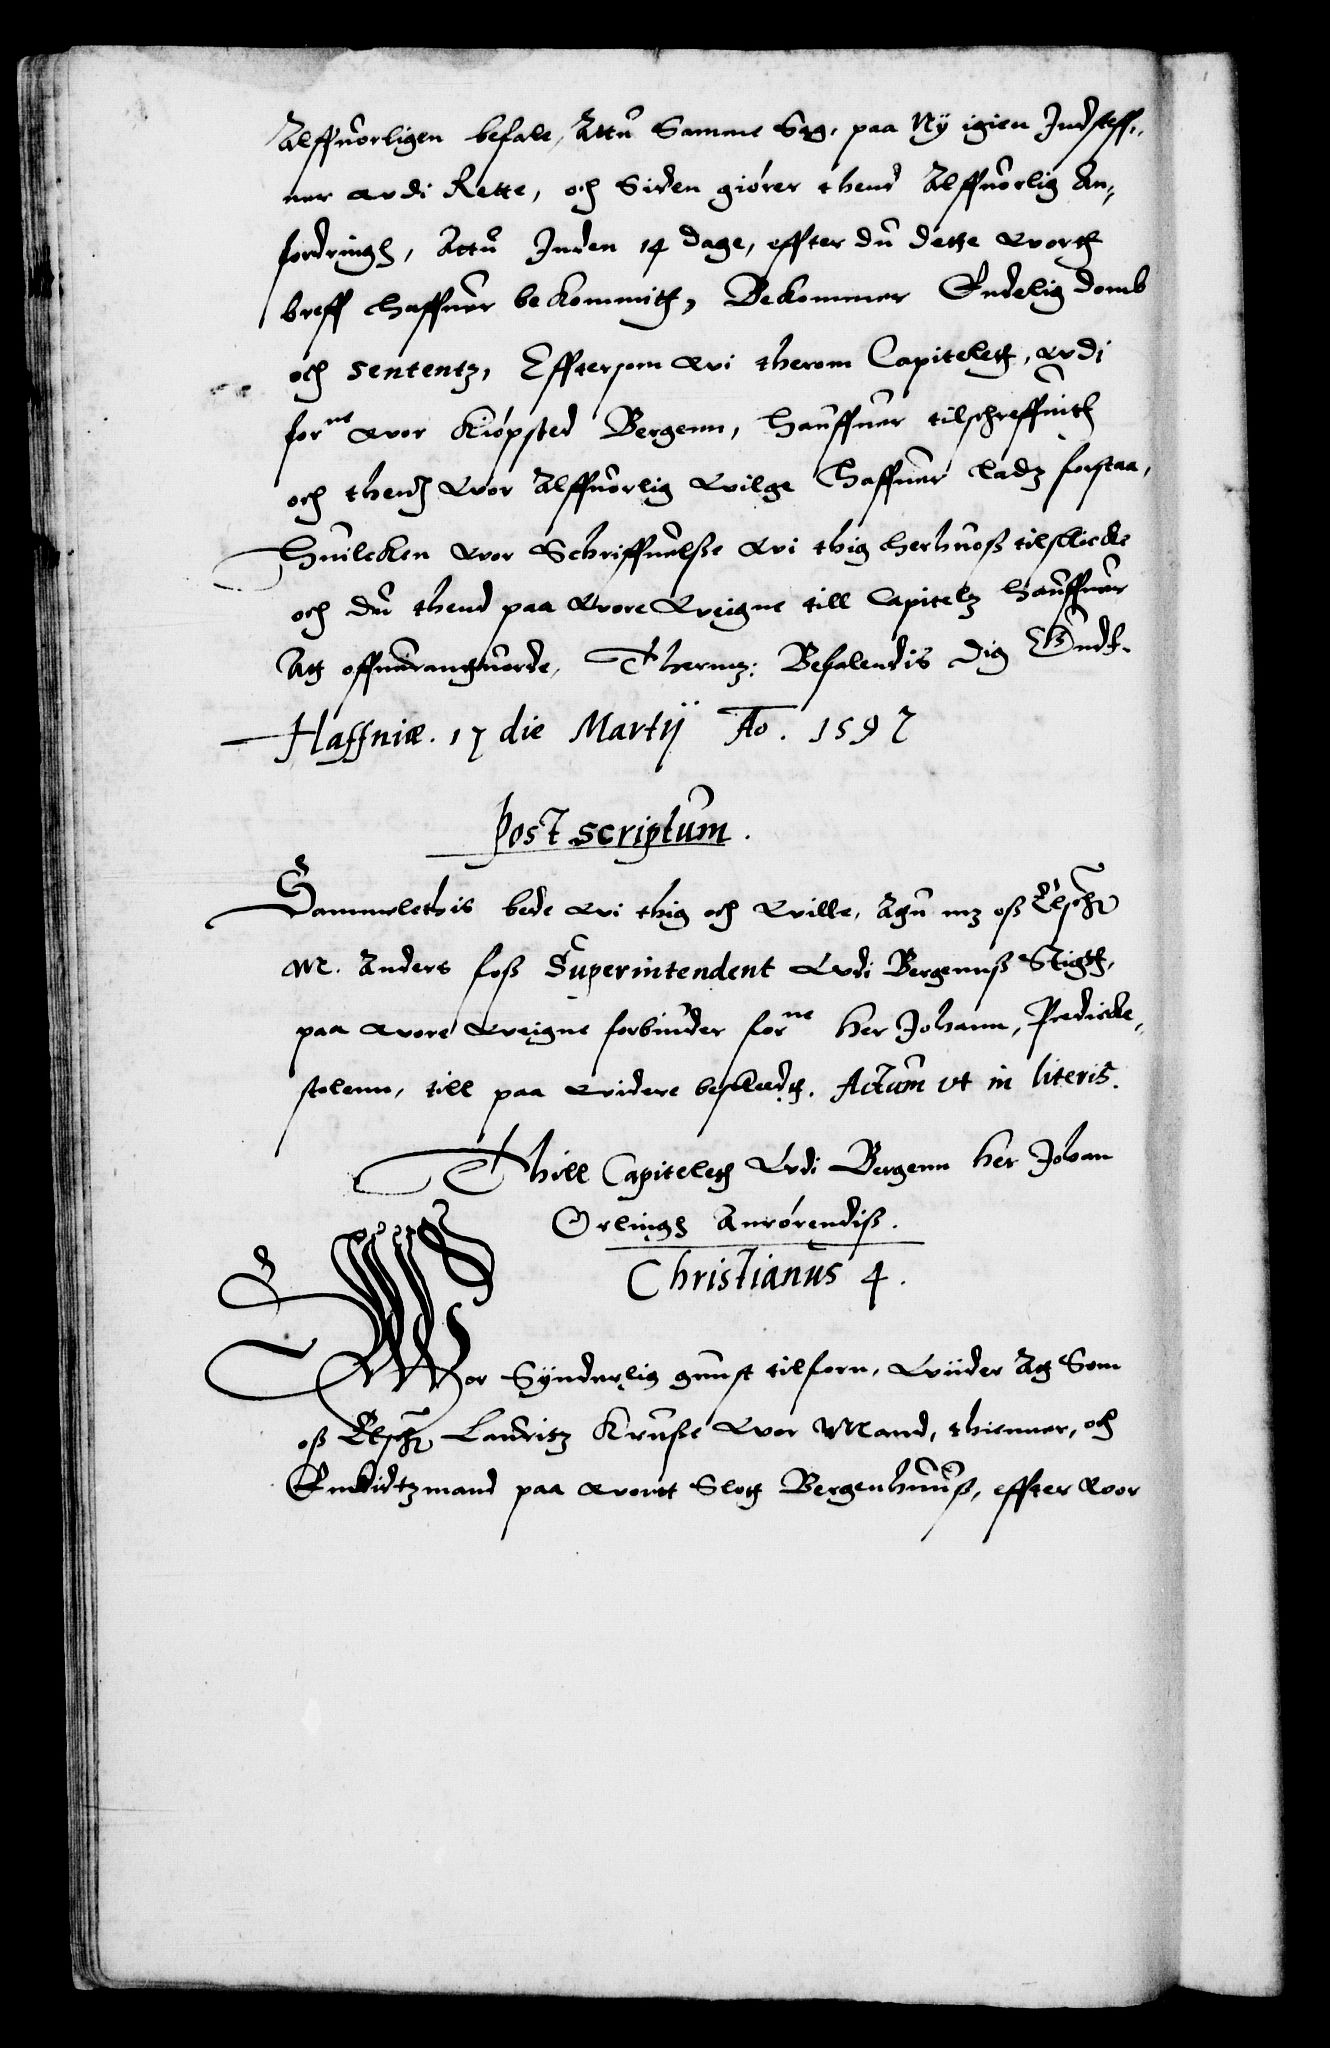 Alffuorligen befale, Attu Samme Sag, paa Ny igien Indsteff,,
ner udi Rette, och Siden giörer thend Alffuorlig An,
fordringh, Attu Inden 14 dage, effter du dette wortt
breff haffuer bekommitt, Bekommer Endelig domb
och sententz, Efftersom wi therom Capitelett, udi
forne wor Kiöpsted Bergenn, hauffuer tilschreffuitt
och thend wor Alffuorlig wilge haffuer ladz forstaa,
Huilcken wor Schriffuelsse wi thig herhuoss tilskicke
och du thend paa wore weigne till Capitelz hauffuer
Att offuerantuorde, Thermz: Befalendis dig Gudt.
Haffniæ. 17 die Martij Ao. 1597
Post scriptum.
Sammeledis bede wi thig och wille, Attu mz oss Elsche
M. Anders foss Superintendent udi Bergenns Stigtt,
paa wore weigne forbiuder forne her Johann, Predicke,
stolenn, till paa widere beskeedtt. Actum ut in literis.
Thill Capitelett udi Bergenn her Johan
Ørlingh Anrörendiss.
Christianus 4.
Wor Synderlig gunst tilforn, Wiider Att Som
oss Elsche Lauritz Krusse wor Mand, thienner, och
Embidtzmand paa wortt Slott Bergenhuuss, effter wor